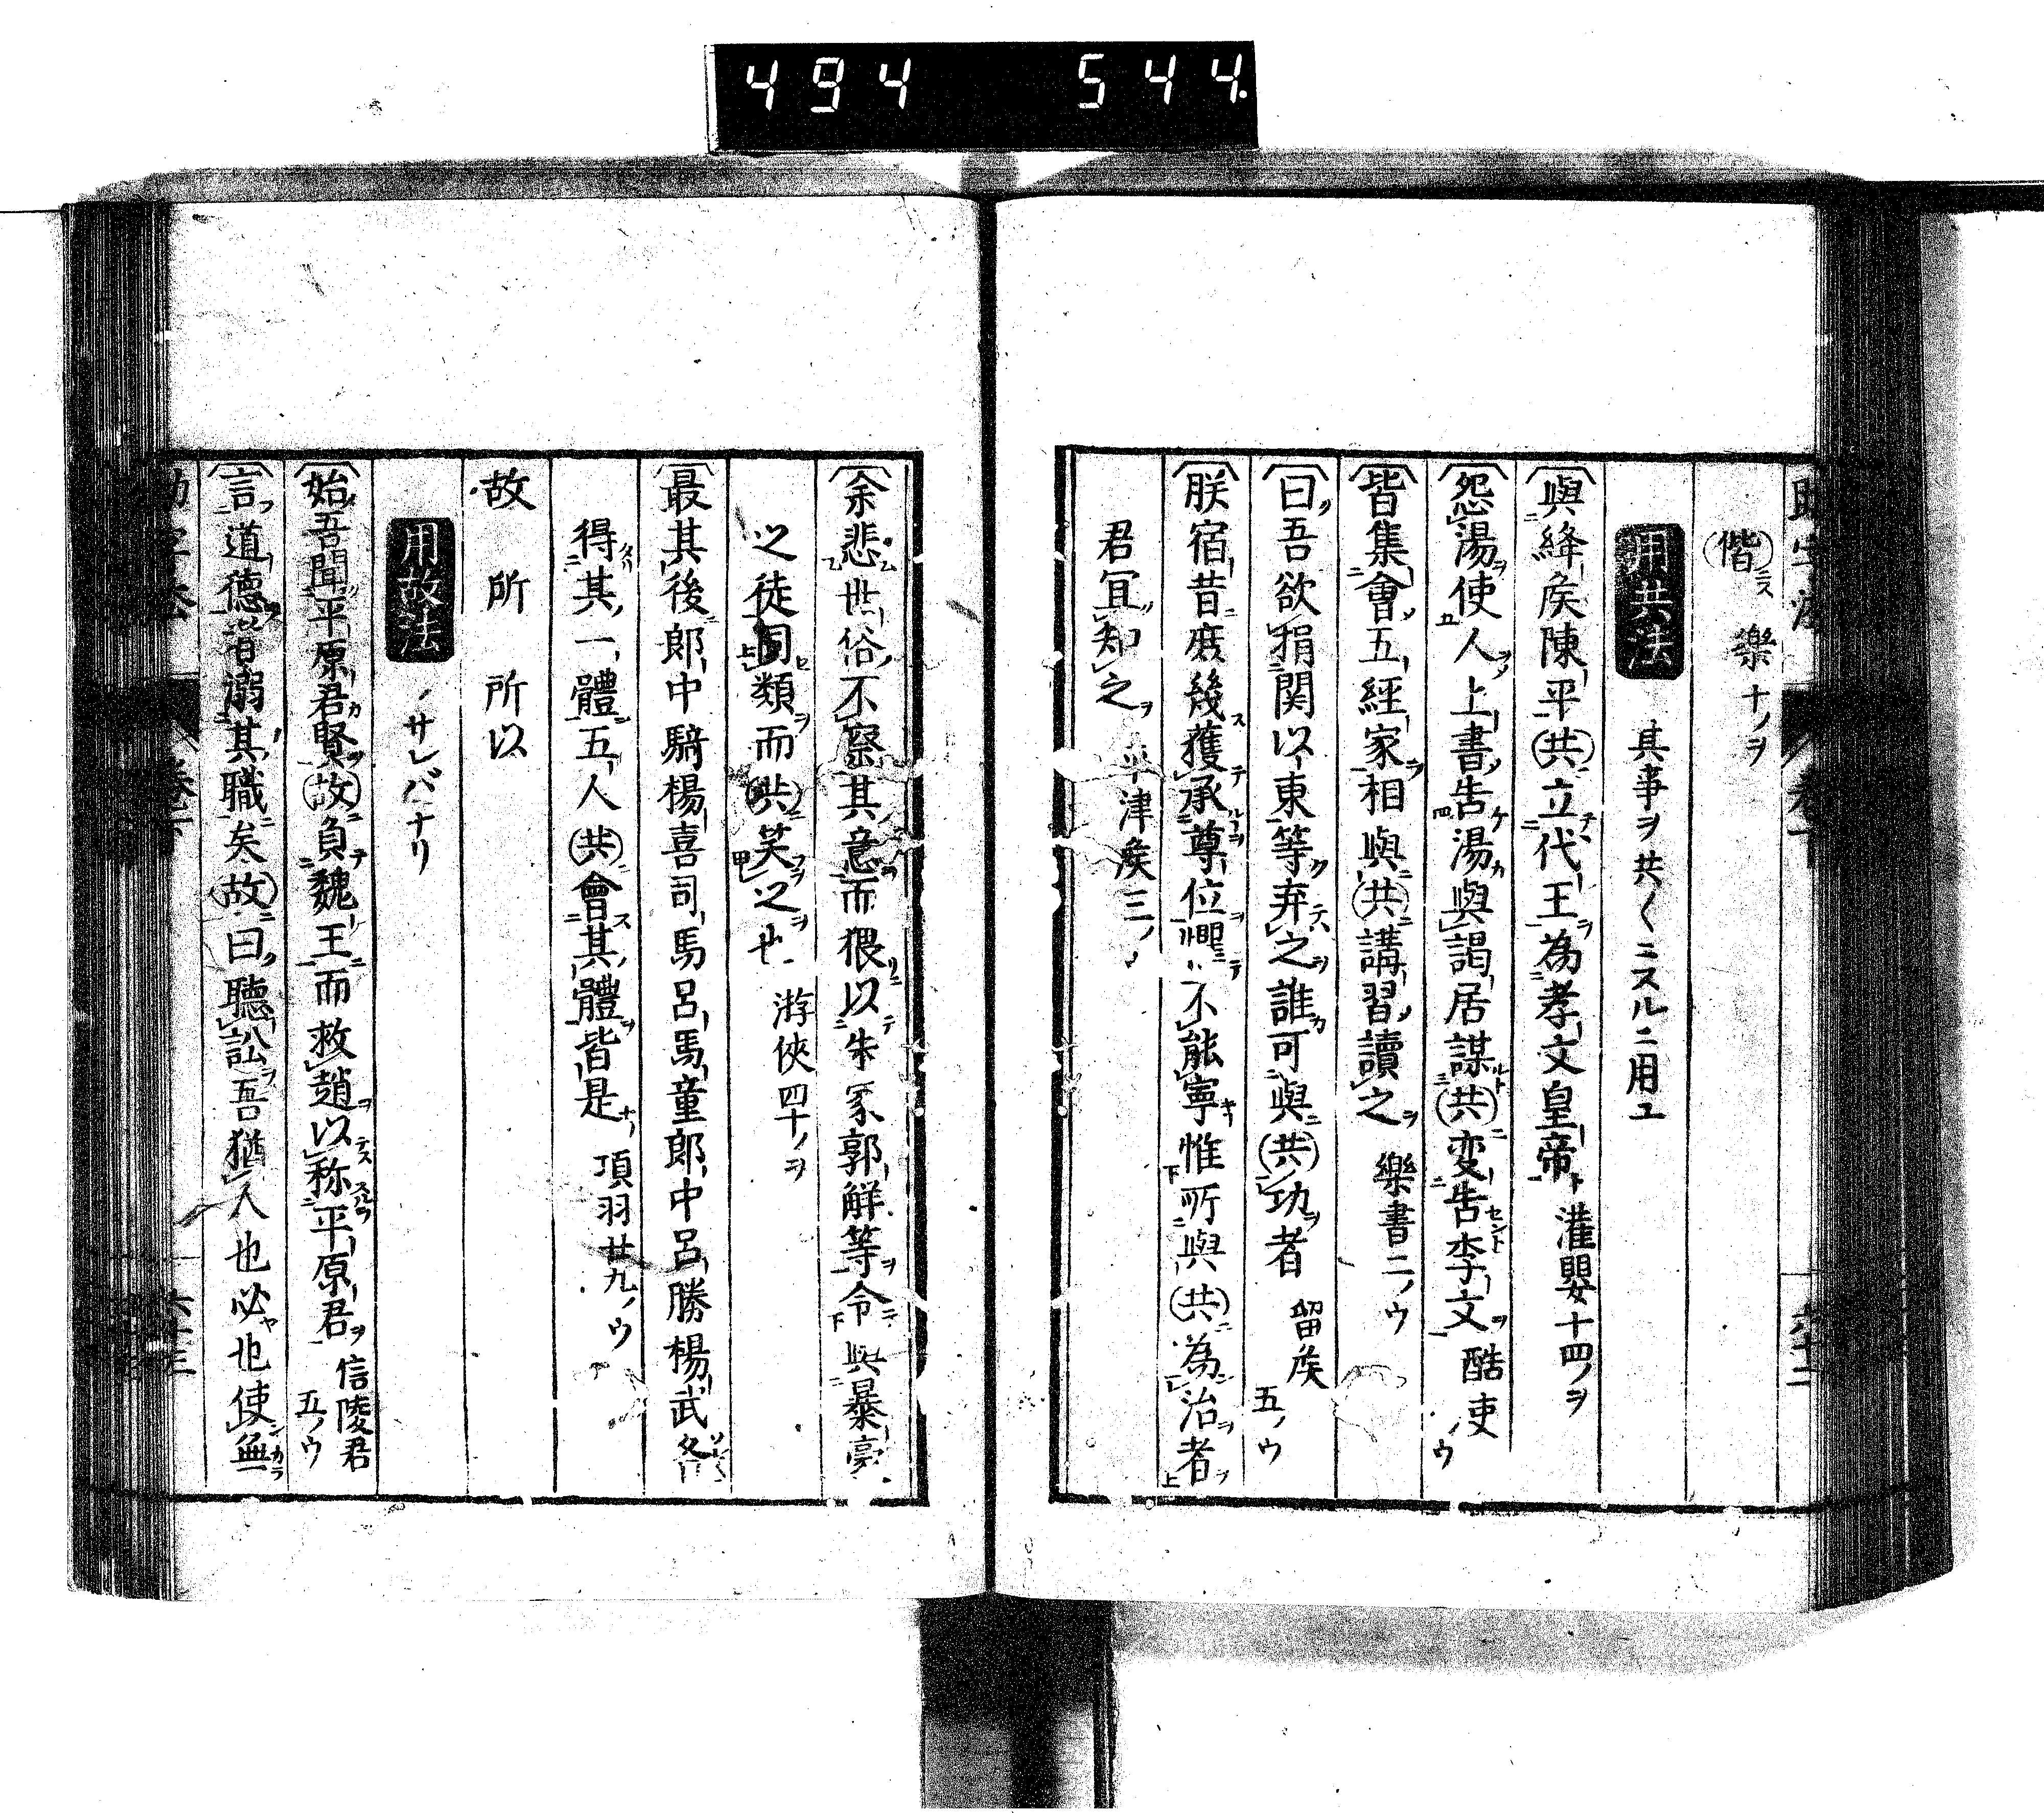 494 544
偕ニス 樂十ノヲ
用共法 其事ヲ共〱ニスルニ用ユ
與絳矦陳平共立代王為孝文皇帝 灌嬰十四ノヲ
怨湯使人上書告湯與謁居謀共変告李文 酷吏ノウ
皆集會五經家相與共講習讀之 樂書二ノウ
曰吾欲捐関以東等弃之誰可與共功者 留矦五ノウ
朕宿昔庻幾獲承尊位懼不能寧惟所與共為治者
君冝知之 平津矦三ノ
余悲世俗不察其意而猥以朱家郭解等令與暴豪
之徒同類而共笑之也 游俠四十ノヲ
最其後郎中騎楊喜司馬呂馬童郎中呂勝楊武各
得其一體五人共會其體皆是 項羽廿九ノウ
故 所 所以
用故法 サレバナリ
始吾聞平原君賢故負魏王而救趙以称平原君 信陵君五ノウ
言道德者溺其職矣故曰聽訟吾猶人也必也使無